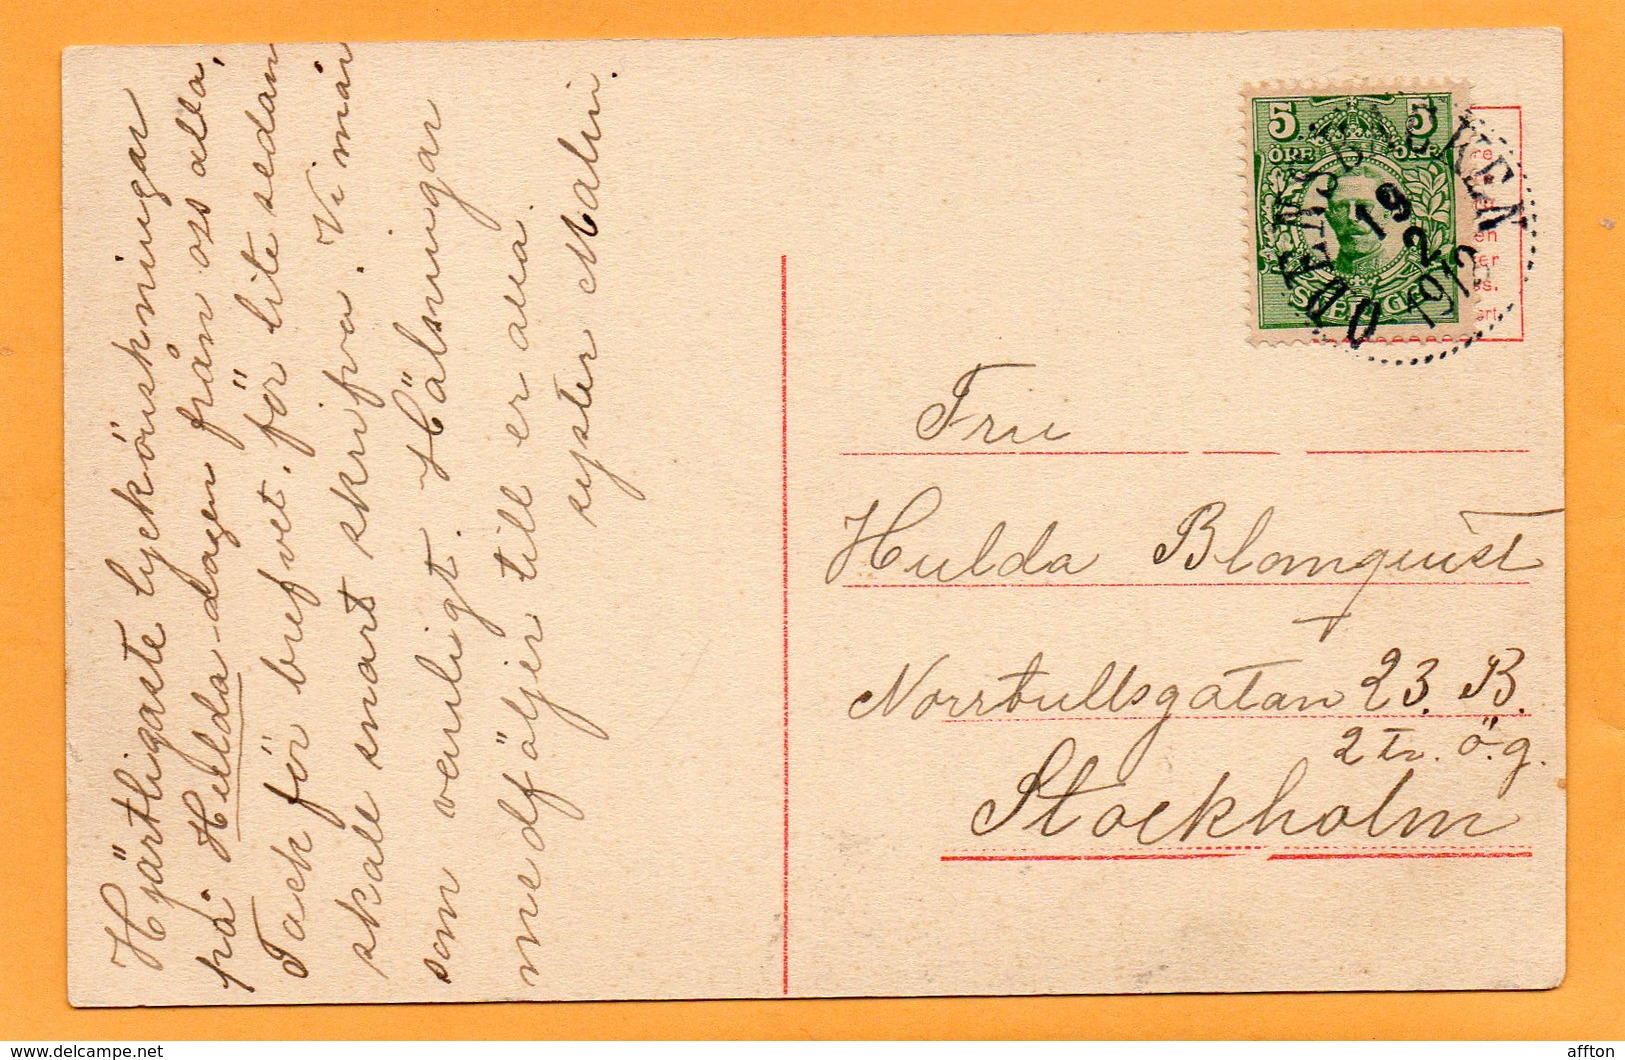 Hjärtligaste lyckönskningar
på Hulda-dagen från oss alla,
Tack för brefvet. för lite sedan
skall snart skrifva. Vi må
som vanligt. Hälsningar
medföljer till er alla.
syster Malin.
5 5
ÖRE ÖRE
SVERIGE
19
2
1912
Fru
Hulda Blomquist
Norrtullsgatan 23. B.
2 tr. ö.g.
Stockholm
affton